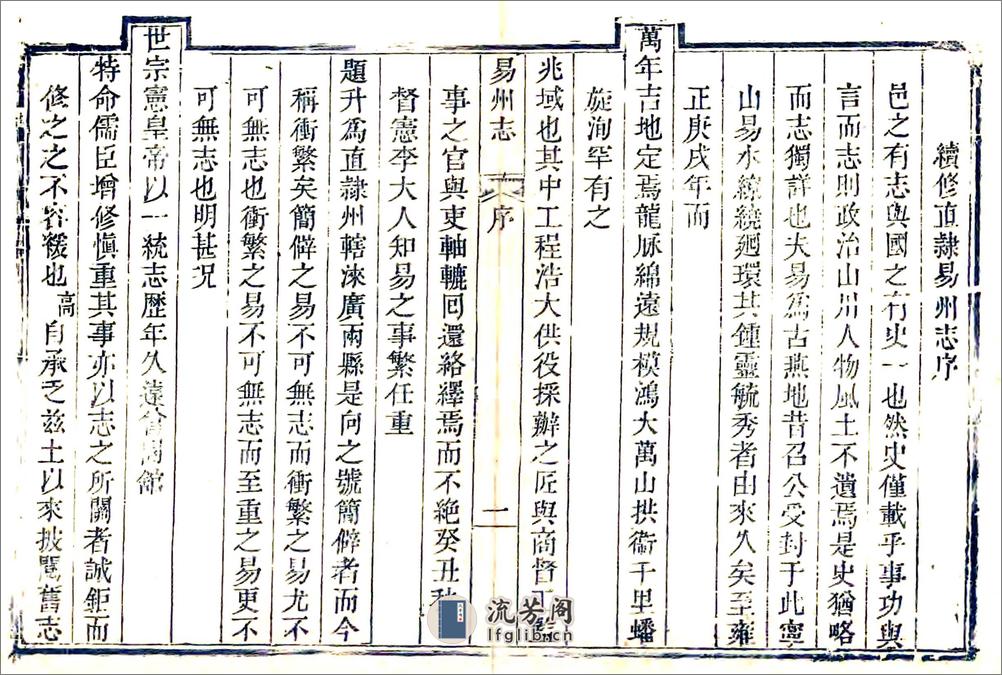 續修直隸易州志序
邑之有志與國之有史一也然史僅載乎事功與
言而志則政治山川人物風土不遺焉是史猶略
而志獨詳也夫易爲古燕地昔召公受封于此寧
山易水繚繞廻環其鍾靈毓秀者由來久矣至雍
正庚戌年而
萬年吉地定焉龍脉綿遠規模鴻大萬山拱衞千里蟠
旋洵罕有之
兆域也其中工程浩大供役採辦之匠與商督工
易州志 序 一
事之官與吏軸轆回還絡繹焉而不絶癸丑秋
督憲李大人知易之事繁任重
題升爲直隷州轄淶廣兩縣是向之號簡僻者而今
稱衝繁矣簡僻之易不可無志而衝繁之易尤不
可無志也衝繁之易不可無志而至重之易更不
可無志也明甚況
世宗憲皇帝以一統志歷年久遠啟館
特命儒臣增修愼重其事亦以志之所關者誠鉅而
修之之不容緩也高自承乏兹土以來披閱舊志
流芳阁
lfglib.cn